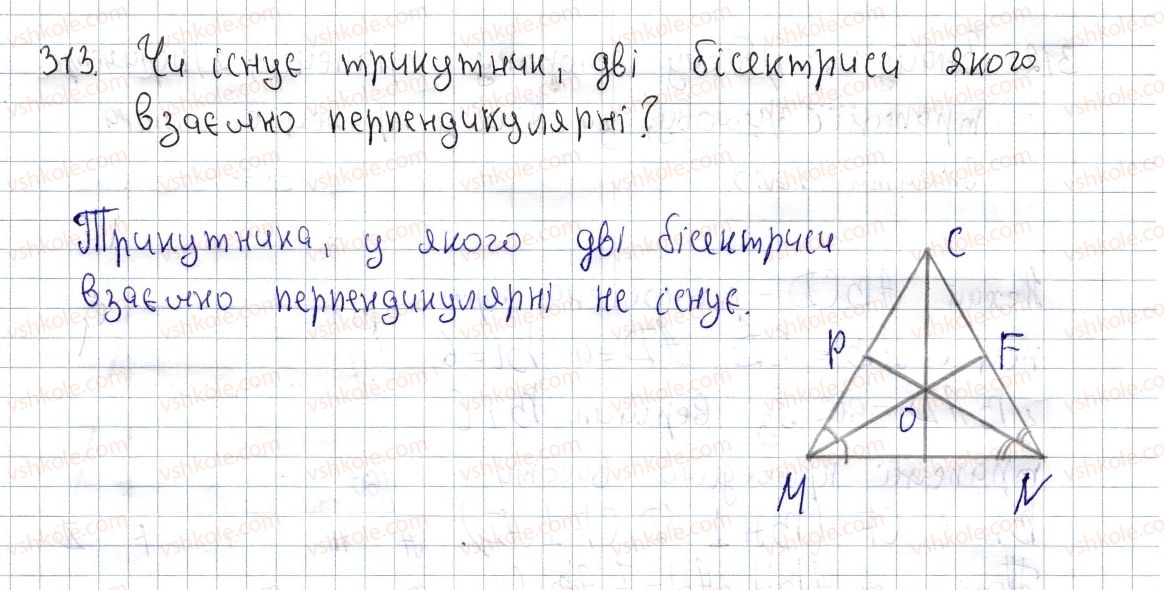 313. Чи існує трикутник, дві бісектриси якого
взаємно перпендикулярні?
Трикутника, у якого дві бісектриси
взаємно перпендикулярні не існує.
C
P F
O
M N